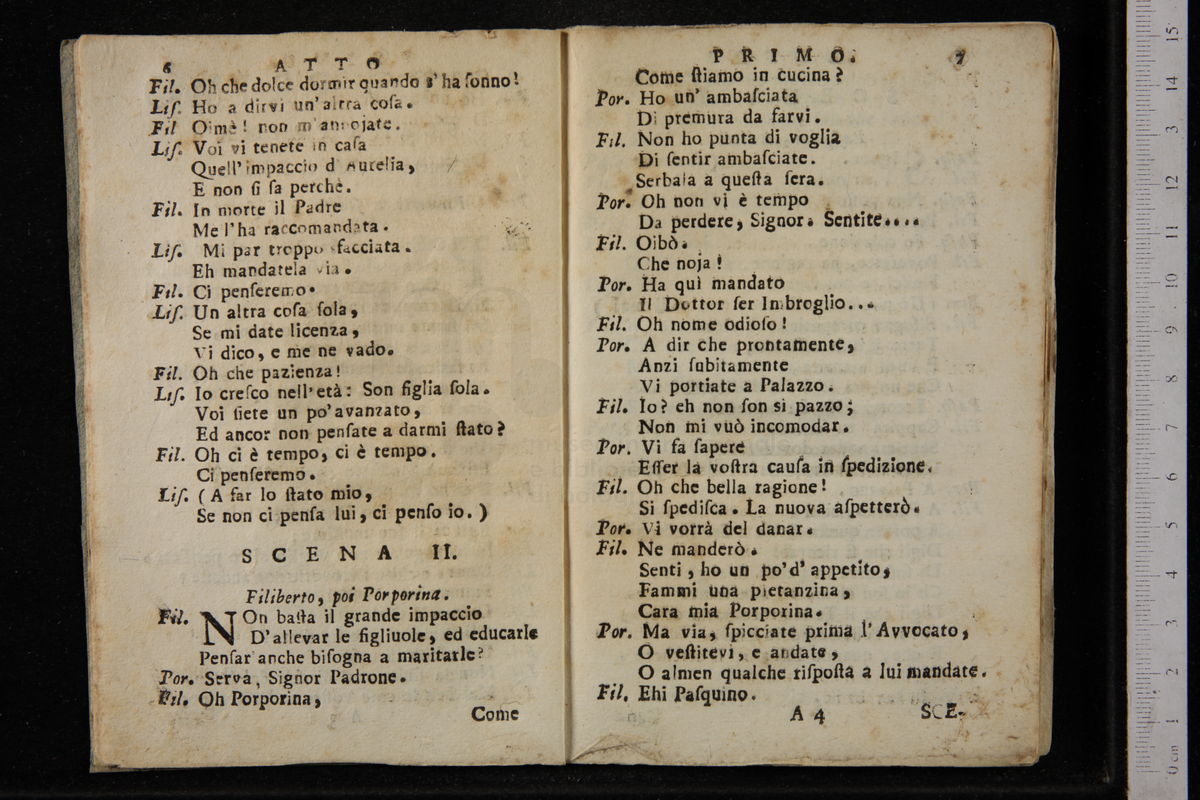 6 ATTO
Fil. Oh che dolce dormir quando s'ha ſonno!
Liſ. Ho a dirvi un'altra coſa.
Fil Oimè! non m'annojate.
Liſ. Voi vi tenete in caſa
Quell'impaccio d'Aurelia,
E non ſi ſa perchè.
Fil. In morte il Padre
Me l'ha raccomandata.
Liſ. Mi par troppo sfacciata.
Eh mandatela via.
Fil. Ci penſeremo.
Liſ. Un altra coſa ſola,
Se mi date licenza,
Vi dico, e me ne vado.
Fil. Oh che pazienza!
Liſ. Io creſco nell'età: Son figlia ſola.
Voi ſiete un po'avanzato,
Ed ancor non penſate a darmi ſtato?
Fil. Oh ci è tempo, ci è tempo.
Ci penſeremo.
Liſ. (A far lo ſtato mio,
Se non ci penſa lui, ci penſo io.)
SCENA II.
Filiberto, poi Porporina.
Fil. NOn baſta il grande impaccio
D'allevar le figliuole, ed educarle
Penſar anche biſogna a maritarle?
Por. Serva, Signor Padrone.
Fil. Oh Porporina,
Come
PRIMO. 7
Come ſtiamo in cucina?
Por. Ho un' ambaſciata
Di premura da farvi.
Fil. Non ho punta di voglia
Di ſentir ambaſciate.
Serbala a queſta ſera.
Por. Oh non vi è tempo
Da perdere, Signor. Sentite....
Fil. Oibò.
Che noja!
Por. Ha qui mandato
Il Dottor ſer Imbroglio...
Fil. Oh nome odioſo!
Por. A dir che prontamente,
Anzi ſubitamente
Vi portiate a Palazzo.
Fil. Io? eh non ſon si pazzo;
Non mi vuò incomodar.
Por. Vi fa ſapere
Eſſer la voſtra cauſa in ſpedizione.
Fil. Oh che bella ragione!
Si ſpediſca. La nuova aſpetterò.
Por. Vi vorrà del danar.
Fil. Ne manderò.
Senti, ho un po'd'appetito,
Fammi una pietanzina,
Cara mia Porporina.
Por. Ma via, ſpicciate prima l'Avvocato,
O veſtitevi, e andate,
O almen qualche riſpoſta a lui mandate.
Fil. Ehi Paſquino.
A 4 SCE-